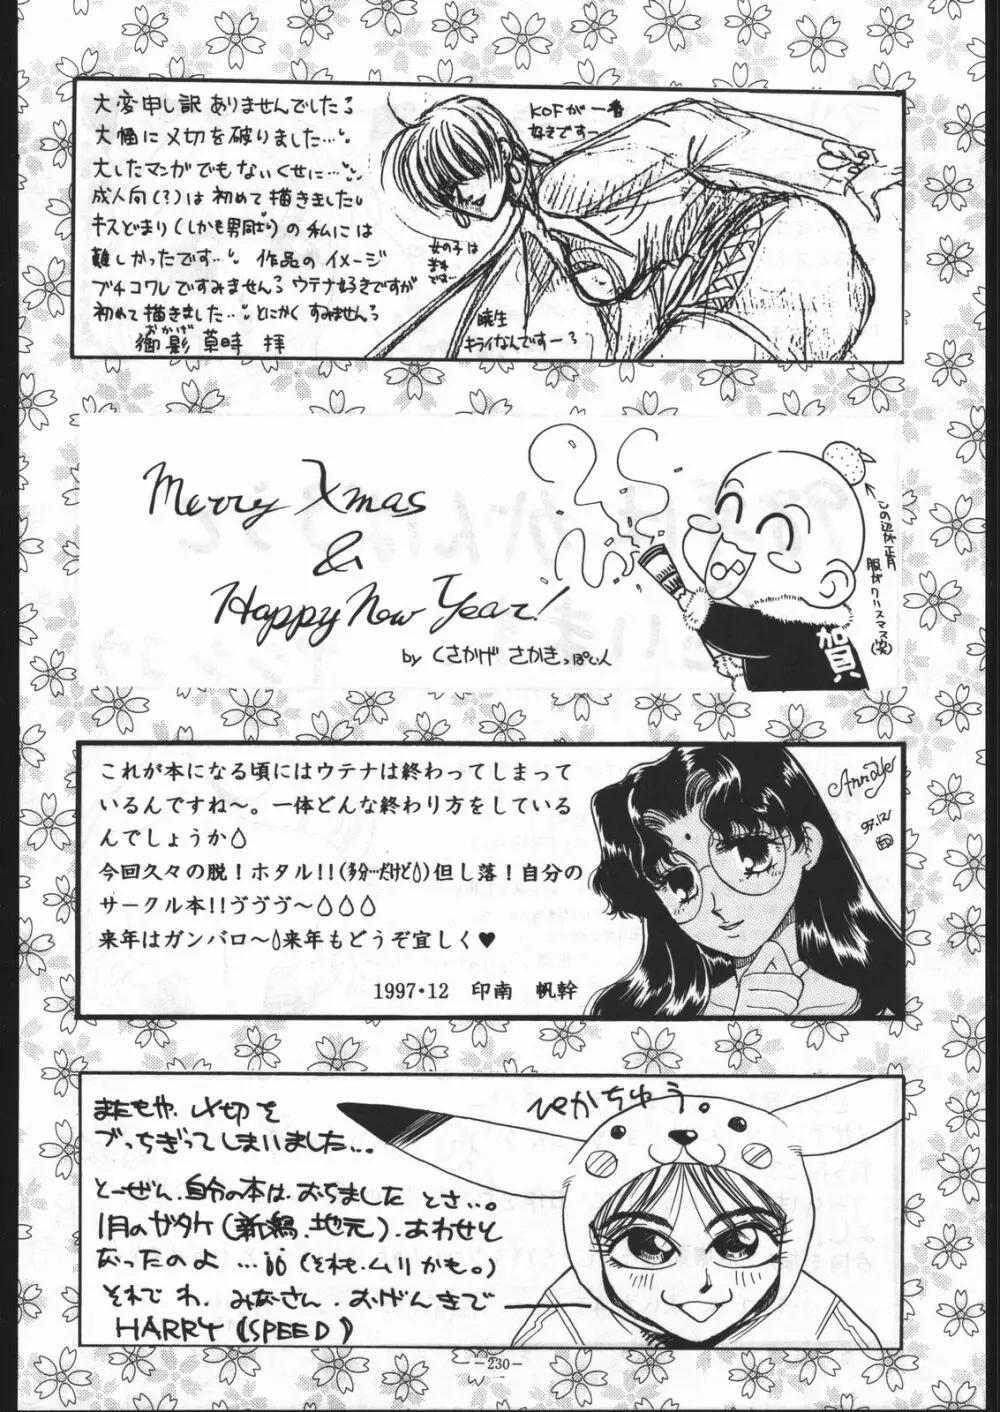 大変申し訳ありませんでした
大幅に〆切を破りました…
大したマンガでもないくせに…
成人向(?)は初めて描きました
キスどまり(しかも男同士)の私には
難しかったです… 作品のイメージ
ブチコワしですみません ウテナ好きですが
初めて描きました… とにかくすみません
御影 草時 拝
KOFが一番
好きですー
女の子は
暁生
キライなんですー
Merry Xmas
&
Happy New Year!
by くさかげ さかきっぽいん
賀
服がクリスマス(笑)
これが本になる頃にはウテナは終わってしまって
いるんですね〜。一体どんな終わり方をしている
んでしょうか
今回久々の脱!ホタル!!(多分…だけど)但し落!自分の
サークル本!!ヴヴヴ〜
来年はガンバロ〜来年もどうぞ宜しく♥
1997・12 印南 帆幹
97.12/
印
ぴかちゅう。
またもや、〆切を
ブッちぎってしまいました…。
とーぜん、自分の本は、おちました とさ…。
1月のガタケ(新潟、地元)、あわせと
なったのよ …(それも、ムリかも。)
それでわ、みなさん、おげんきで
HARRY (SPEED)
-230-